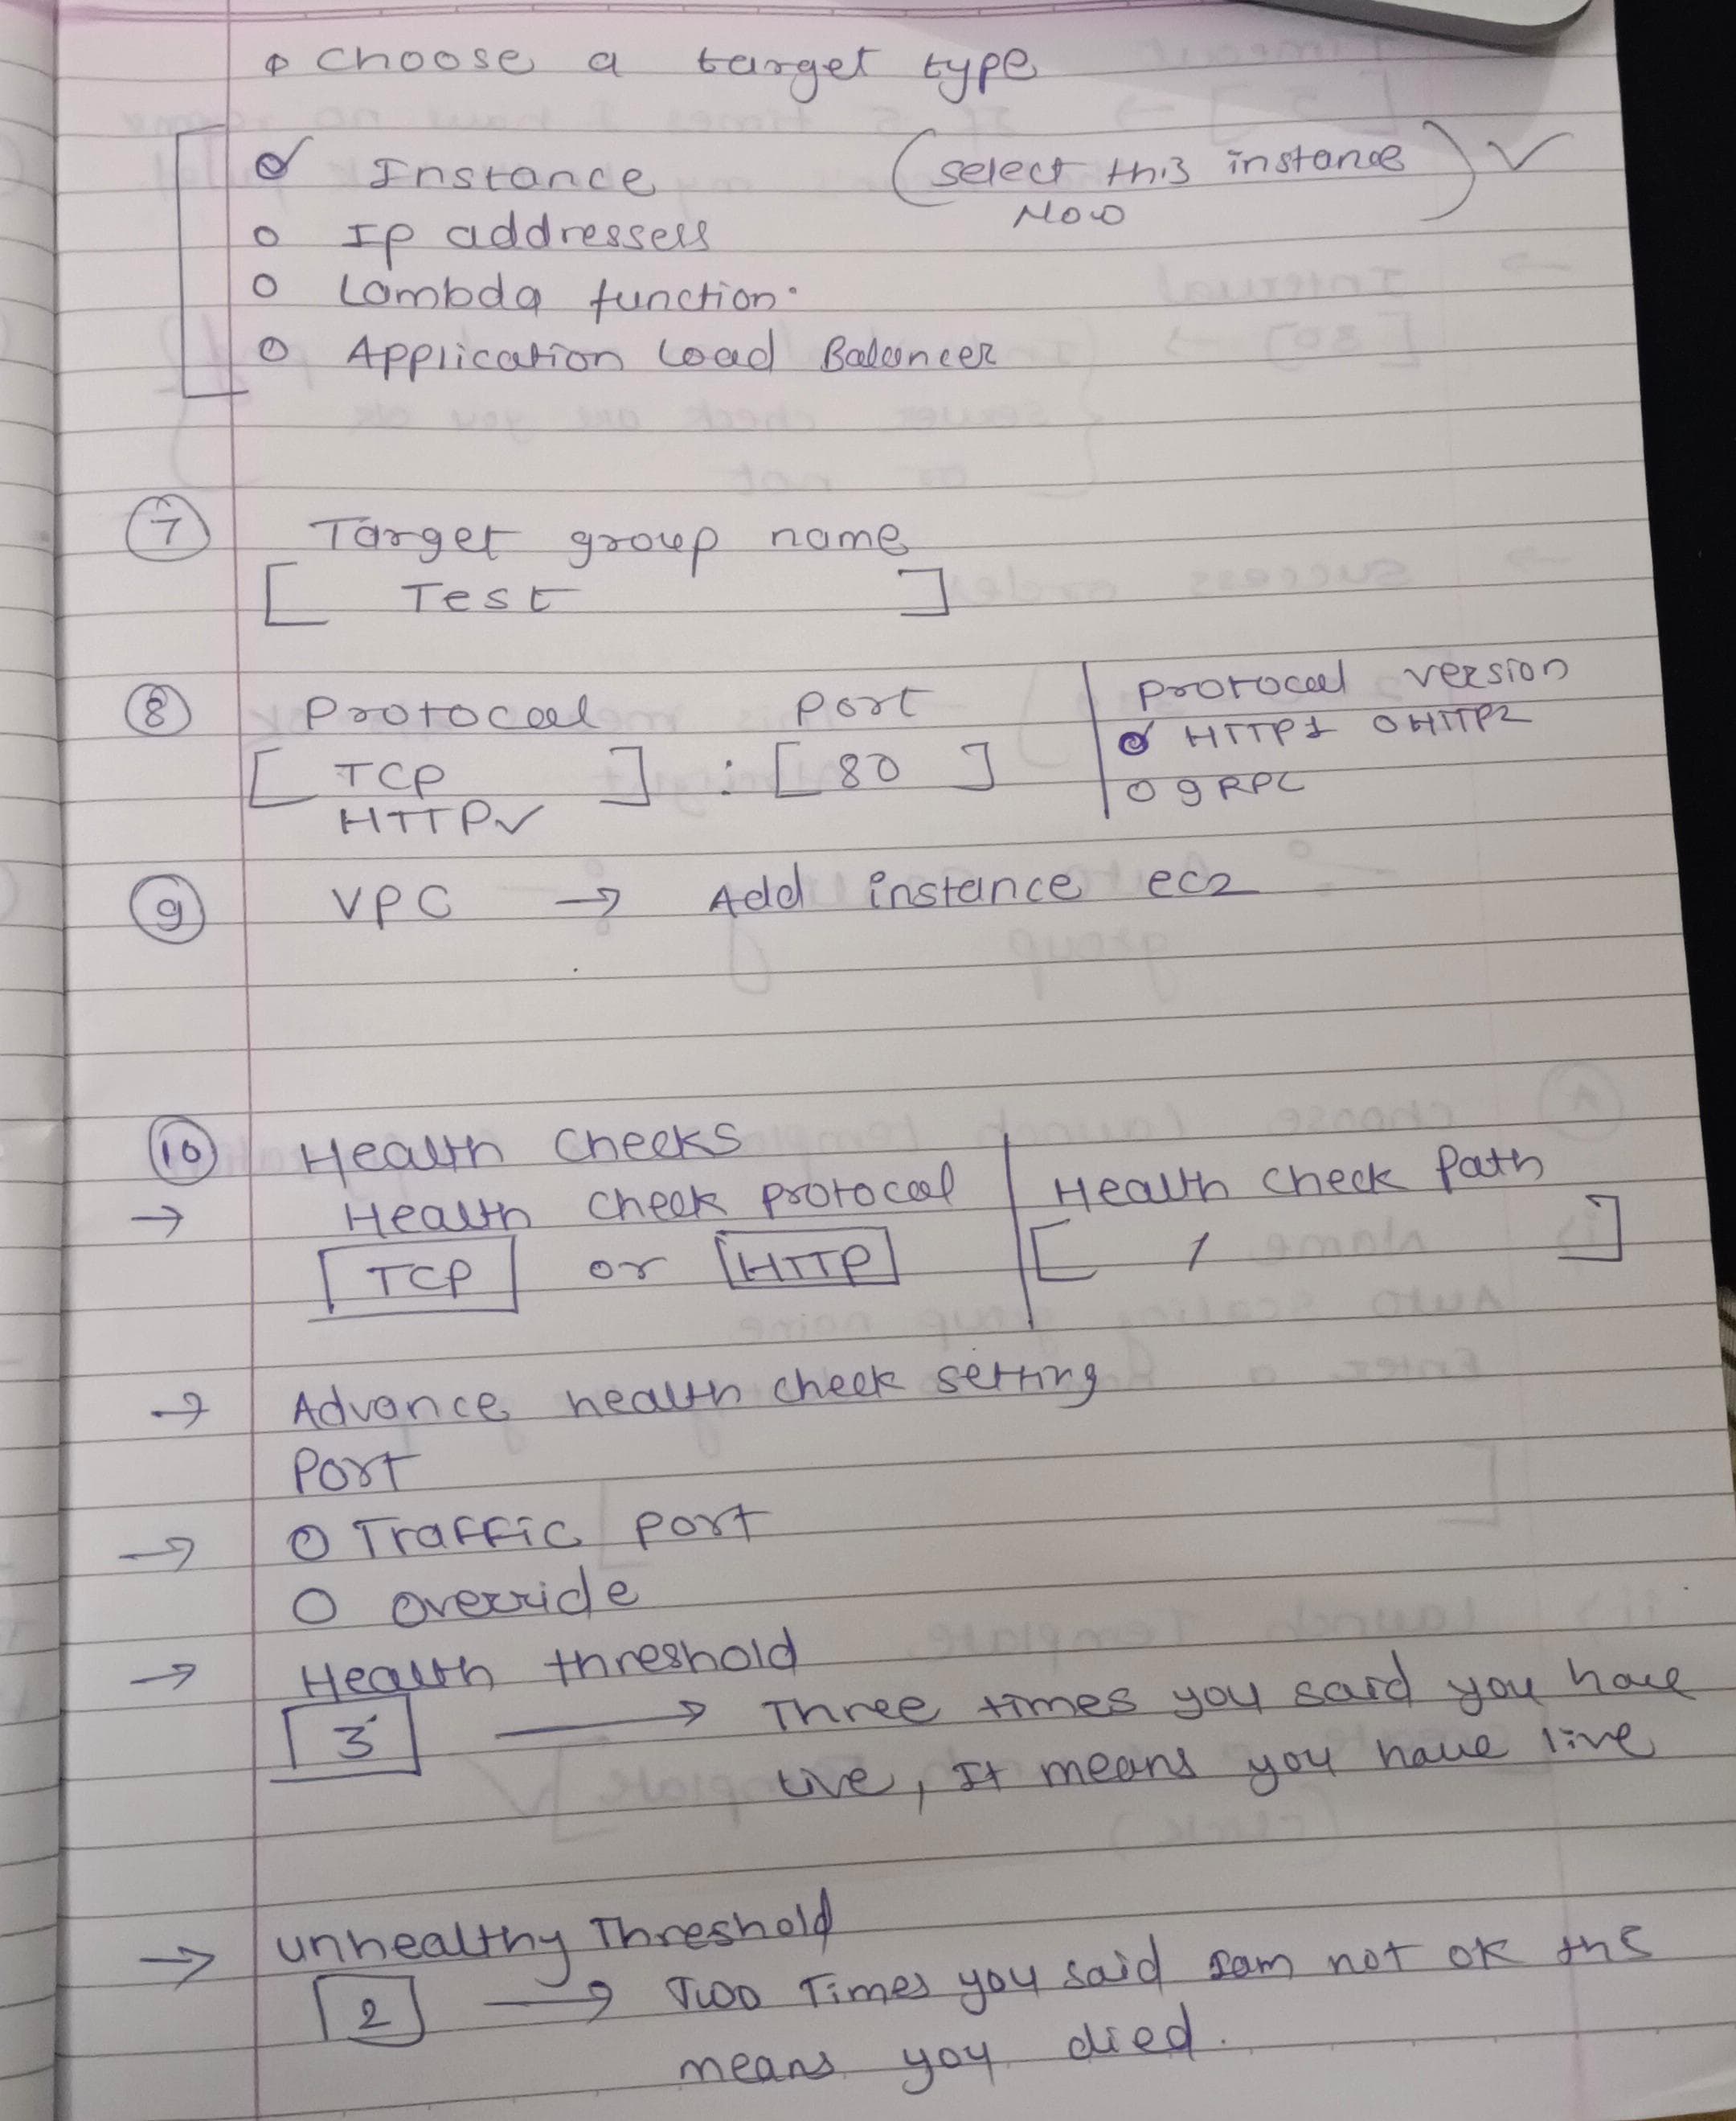 choose a target type
Instance (select this instance Now) ✓
Ip addressess
Lambda function.
Application Load Balancer
7 Target group name
[ Test ]
8 Protocal Port | Protocal version
[ TCP ] : [ 80 ] | HTTP1 O HTTP2
HTTP✓ O gRPC
9 VPC → Add instance ec2
10 Health checks
→ Health check protocal | Health check Path
[TCP] or [HTTP] [ / ]
→ Advance health check setting
Port
→ O Traffic port
O override
→ Health threshold
[3] → Three times you said you have
live, It means you have live
→ unhealthy Threshold
[2] → Two Times you said Iam not ok ths
means you died.